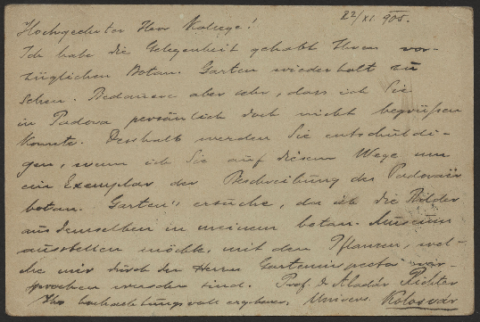 22/XI. 905.
Hochgeehrter Herr Kollege!
Ich habe die Gelegenheit gehabt Ihren vor-
züglichen Botan. Garten wiederholt zu
sehen. Bedauere aber sehr, dass ich Sie
in Padova persönlich doch nicht begrüssen
konnte. Desshalb werden Sie entschuldi-
gen, wenn ich Sie auf diesem Wege um
ein Exemplar der Beschreibung des Padovaër
botan. Garten's ersuche, da ich die Bilder
aus demselben in meinem botan. Museum
ausstellen möchte, mit den Pflanzen, wel-
che mir durch den Herrn Garteninspector ver-
sprochen worden sind. Prof. Dr. Aladár Richter
Ihr hochachtungsvoll ergebener, Univers. Kolozsvár